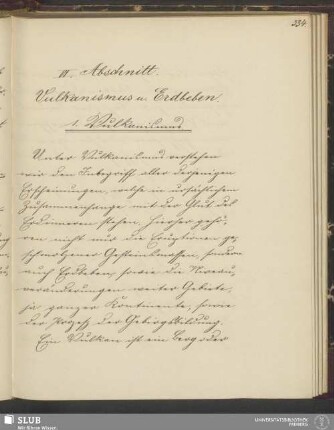 234.
IV. Abschnitt.
Vulkanismus u. Erdbeben.
1. Vulkanismus
Unter Vulkanismus verstehen
wir den Inbegriff aller derjenigen
Erscheinungen, welche in ursächlichem
Zusammenhange mit der Glut des
Erdinneren stehen. Hierher gehö-
ren nicht nur die Eruptionen ge-
schmolzener Gesteinsmassen, sondern
auch Erdbeben, sowie die Niveau-
veränderungen weiter Gebiete,
ja ganzer Kontinente, sowie
der Prozeß der Gebirgsbildung.
Ein Vulkan ist ein Berg oder
SLUB
Wir führen Wissen.
UNIVERSITÄTSBIBLIOTHEK
FREIBERG